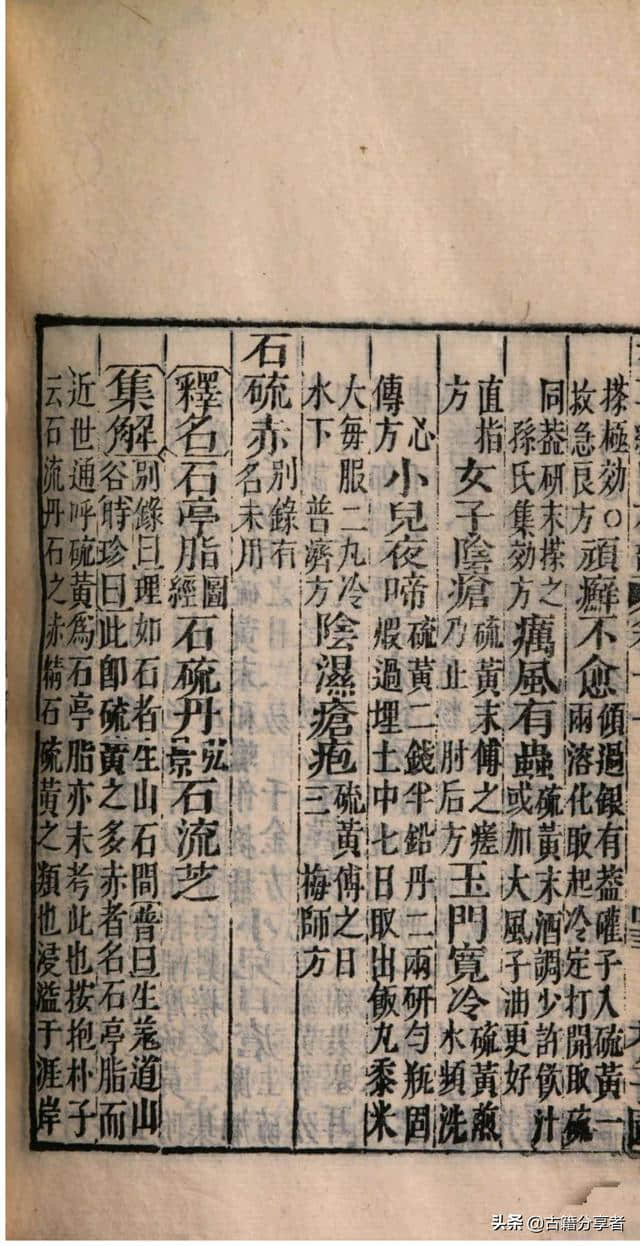 搽極效○救急良方頑癬不愈傾過銀有蓋礶子入硫黃一兩溶化取起冷定打開取硫
同蓋研末搽之孫氏集效方癘風有蟲硫黃末酒調少許飲汁或加大風子油更好
直指方女子陰瘡硫黃末傅之瘥乃止肘后方玉門寬冷硫黃煎水頻洗
心傳方小兒夜啼硫黃二錢半鉛丹二兩研勻瓶固煅過埋土中七日取出飯丸黍米
大每服二丸冷水下普濟方陰濕瘡疱硫黃傅之日三梅師方
石硫赤別錄有名未用
釋名石亭脂圖經石硫丹弘景石流芝
集解別錄曰理如石者生山石間普曰生羌道山谷時珍曰此即硫黃之多赤者名石亭脂而
近世通呼硫黃爲石亭脂亦未考此也按抱朴子云石流丹石之赤精石硫黃之類也浸溢于涯岸
头条 @古籍分享者